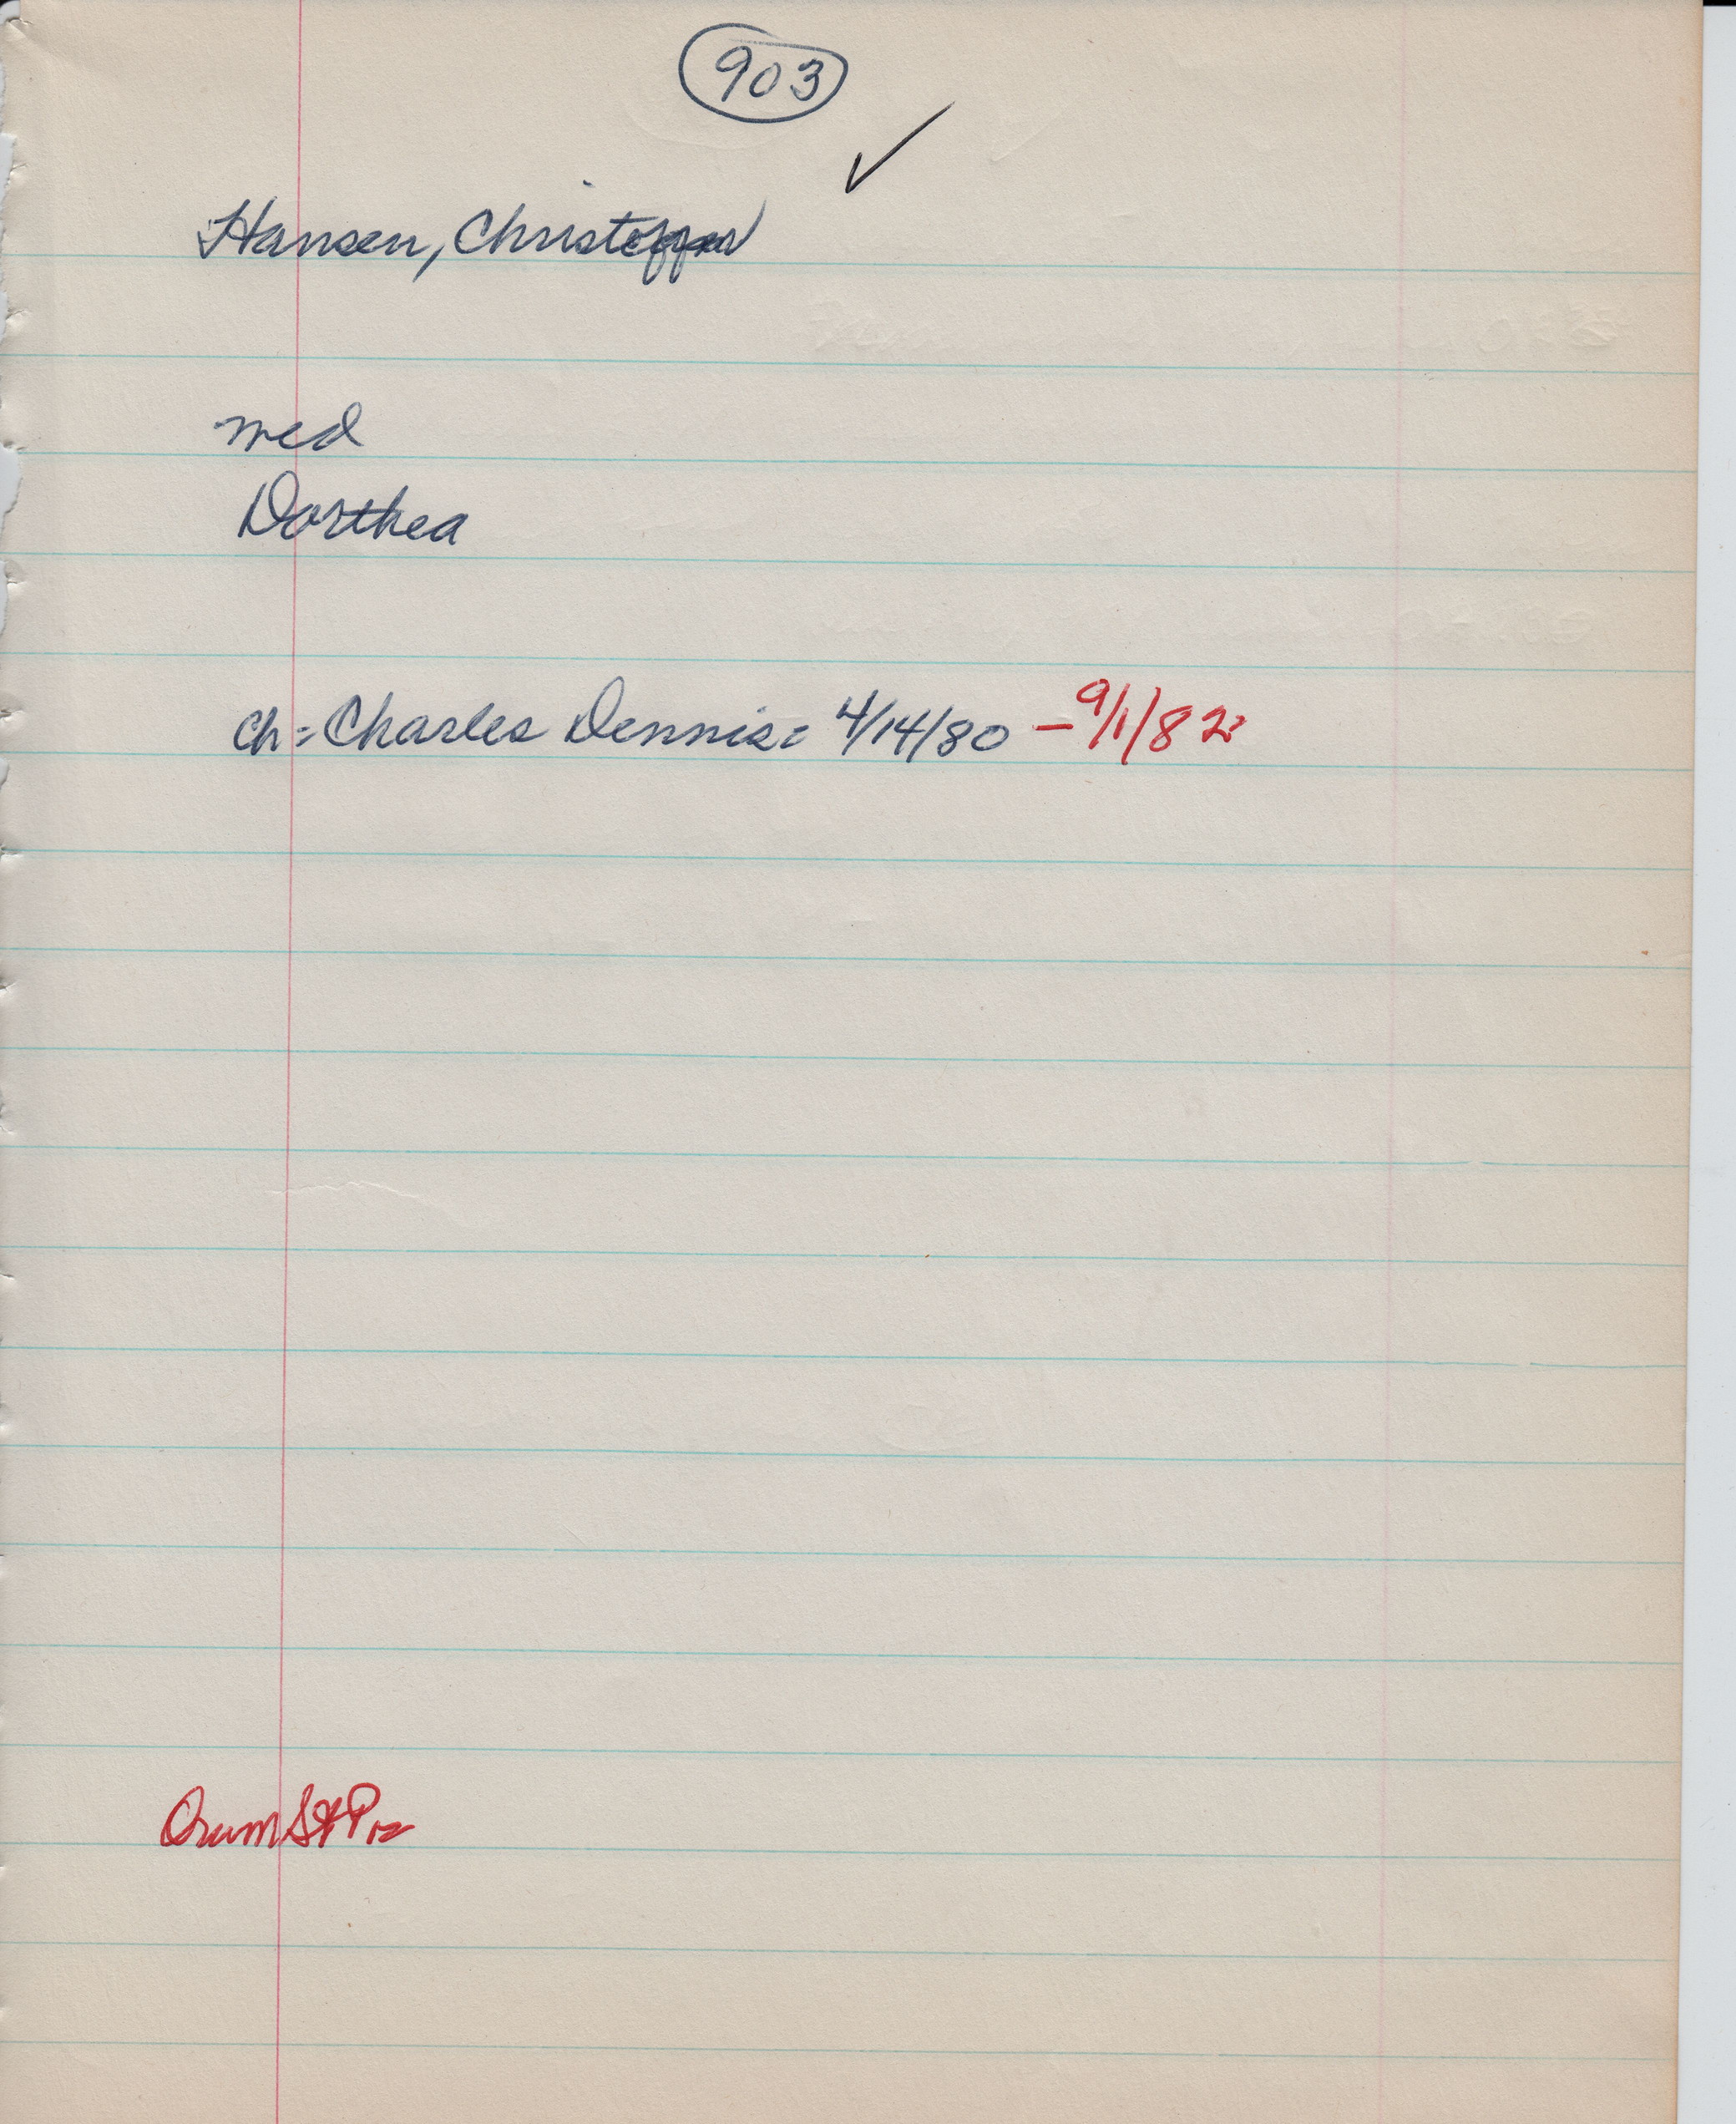 903
✓
Hansen, Christoffer
med
Dorthea
ch: Charles Dennis: 4/14/80 – 9/1/82